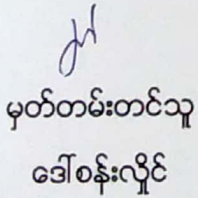 မှတ်တမ်းတင်သူ
ဒေါ်စန်းလှိုင်